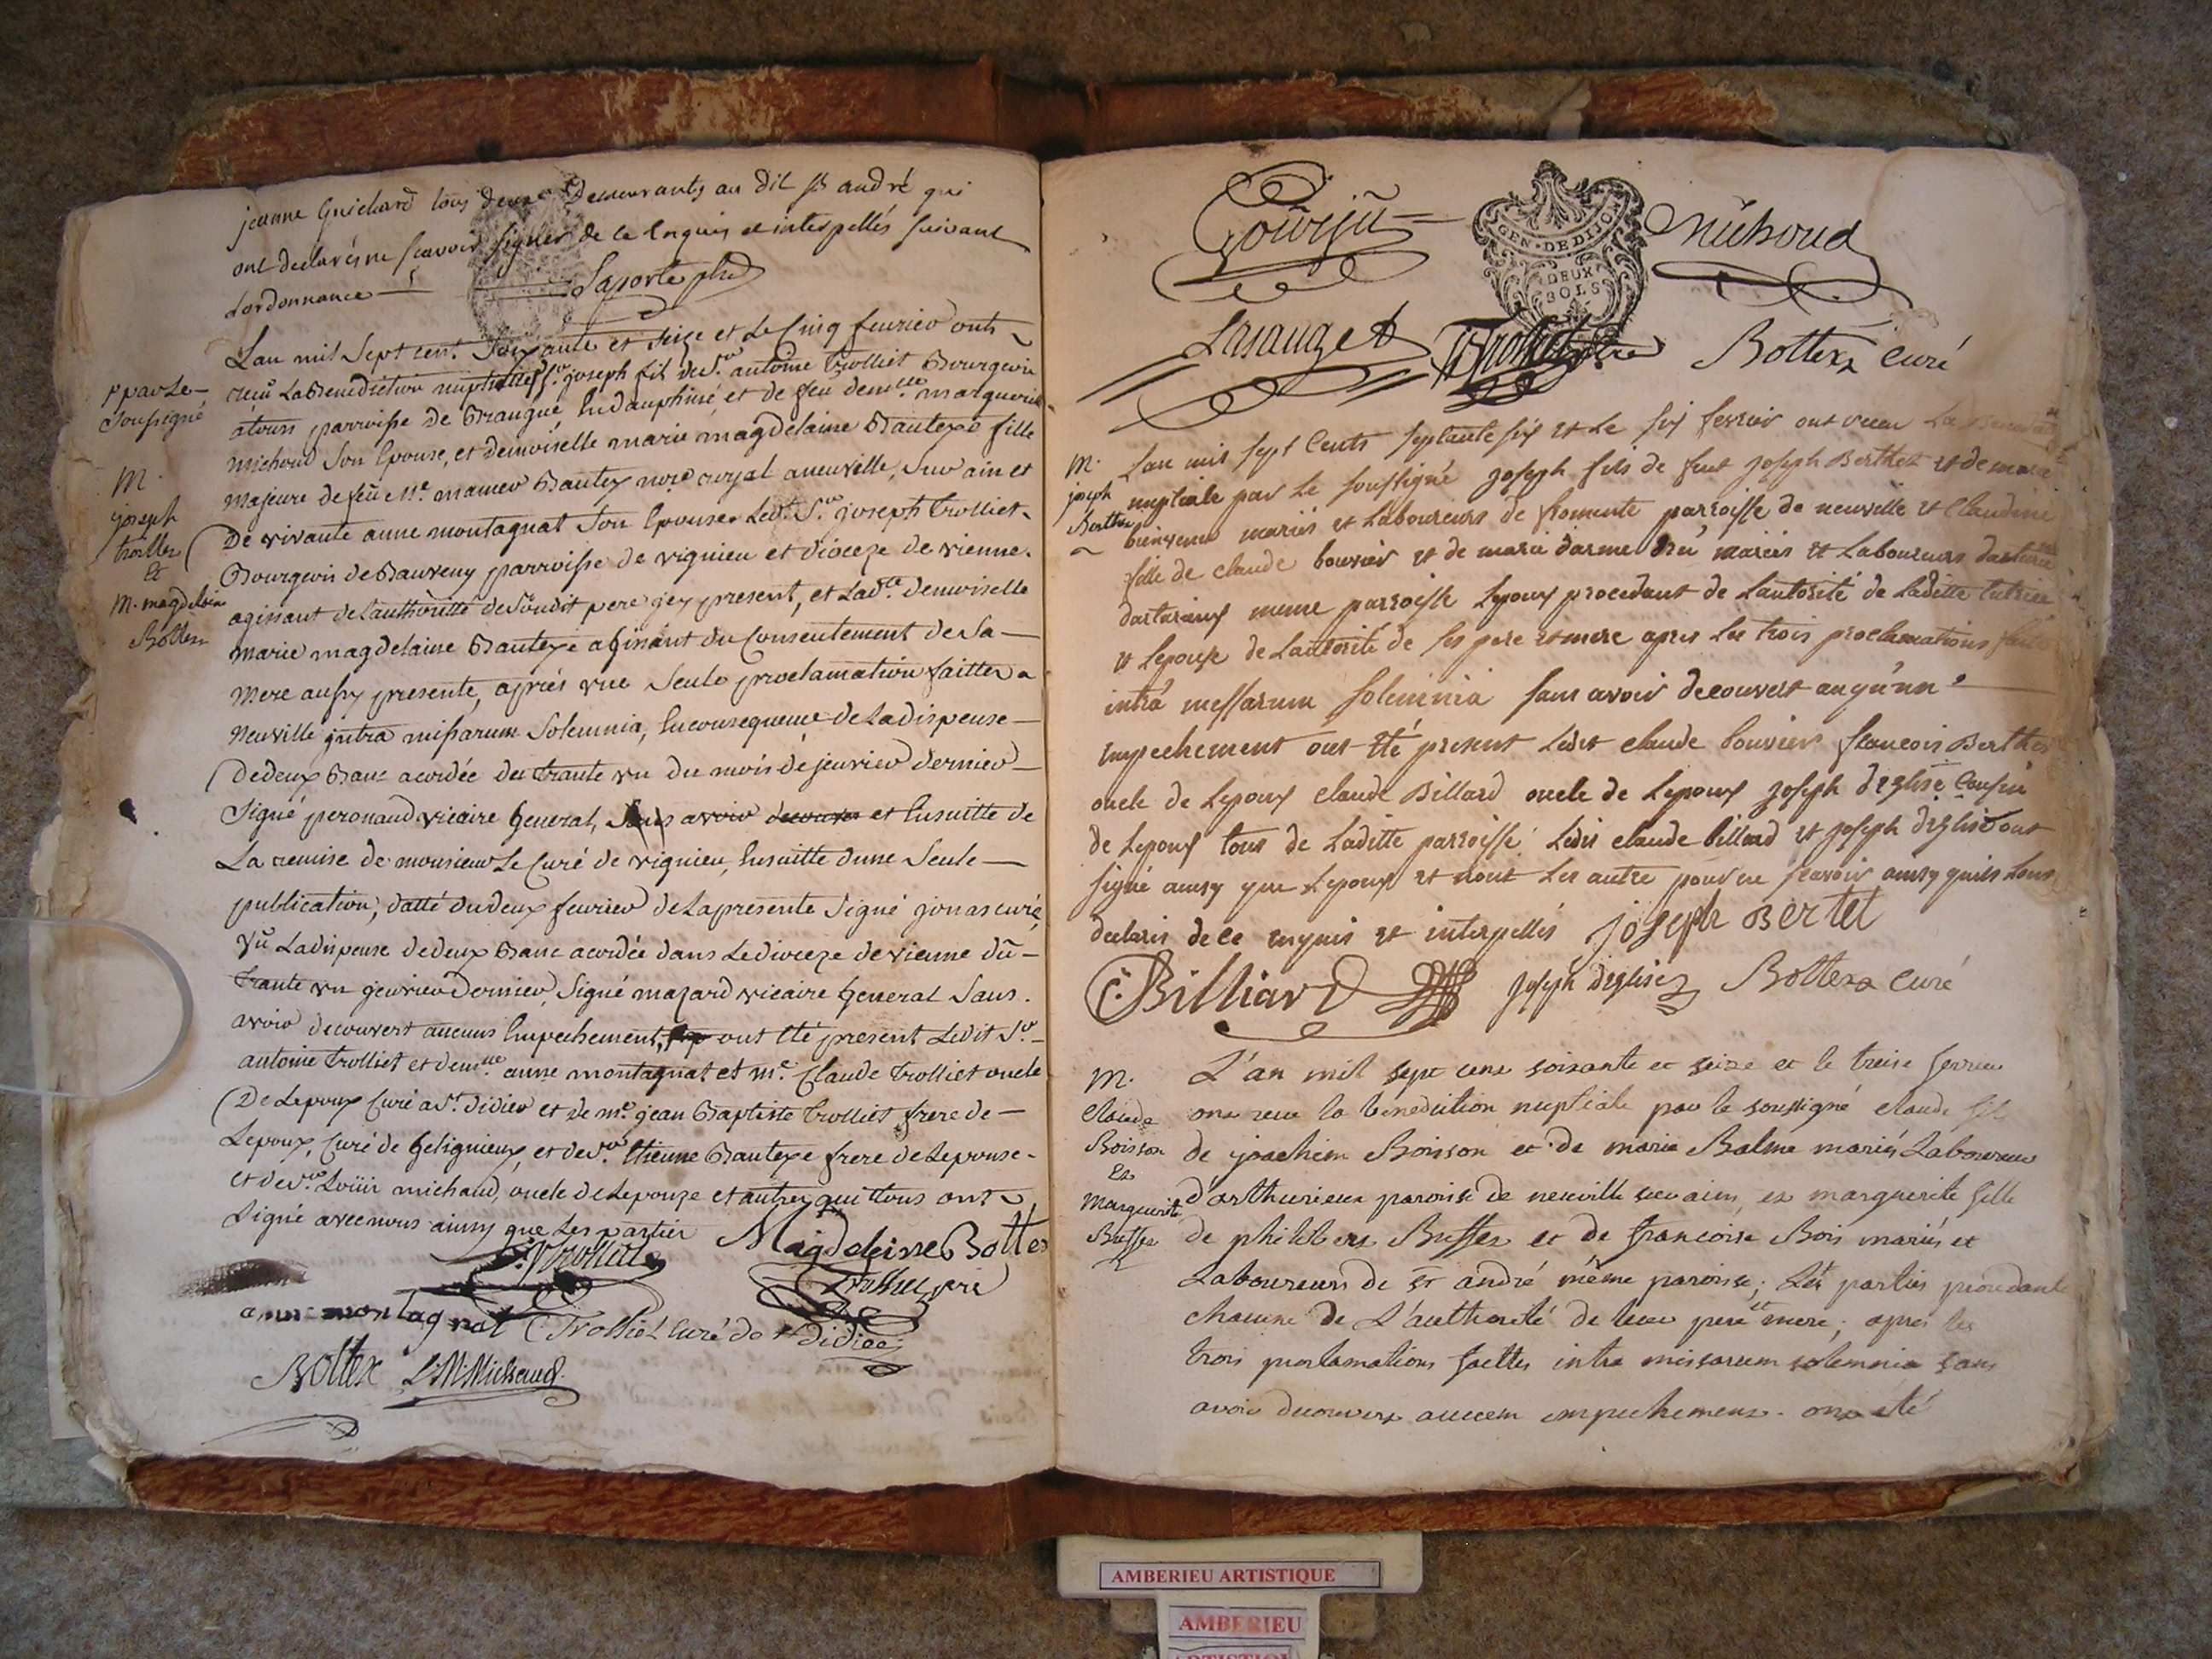 jeanne Guichard tous deux Demeurants au dit St andré qui
ont declarés ne scavoir signer de ce Enquis et interpellés suivant
Lordonnance
Laporte ptre
Lan mil Sept cent Soixante et Seize et Le Cinq feurier onts
receu La Benediction nuptialle Sr. joseph fil de Sr. antoine trolliet Bourgeois
atours parroisse de Brangue En dauphiné, et de feu demlle. marguerite
michoud Son Epouse, et demoiselle marie magdelaine Bautexe fille
majeure de feu Me. mamer Bautex nore. royal a neuville, Sur ain et
De vivante anne montagnat Son Epouse. Ledt. Sr. joseph trolliet
Bourgeois de Bauveny parroisse de vignieu et dioceze de vienne.
agissant de Lauthoritté de Sondit pere jcy present, et Ladte. demoiselle
marie magdelaine Bautexe agissant du Consentement de Sa
mere aussy presente, aprés vne Seule proclamation faitte a
Neuville jntra missarum Solemnia, En consequence de La dispense
De deux Banc acordée du trante vn du mois de jenvier dernier
Signé peronaud vicaire General, Sans avoir decouver et Ensuitte de
La remise de monsieur Le Curé de vignieu, Ensuitte dune Seule
publication, datté du deux feurier de La presente Signé jonas curé
vû La dispense de deux Banc acordée dans Le dioceze de vienne du
trante vn jenvier Dernier, Signé mazard vicaire General Sans
avoir decouvert aucuns Empechement, ont Eté present Ledit Sr.
antoine trolliet et demlle. anne montagnat et me. Claude trolliet oncle
De Lepoux Curé a St. didier et de me. jean Baptiste trolliet frere de
Lepoux, Curé de Gelignieux, et de Sr. Etienne Bautexe frere de Lepouse
et de Sr. Loüis michaud, oncle de Lepouze et autres qui ttous onts
Signé avec nous ainsy que Les partier
ppar Le
Soussigné
M.
joseph
trollier
Et
M. magdelaine
Bottex
Magdeleine Bottex
anne montagnat Trolliet Curé de st didier
Bottex L: M: Michaud
GEN. DE DIJON
DEUX
SOLS
Gourju
Michoud
Lasauzet
Bottex Curé
Lan mil sept Cents septante six et Le six fevrier ont receu La
nuptiale par Le soussigné joseph fils de feut joseph Berthet et de marie
bienvenu mariés et Laboureurs de fromente parroisse de neuville et Claudine
fille de claude bouvier et de marie darme mariés et Laboureurs
dartarieux meme parroisse Lepoux procedant de Lautorité de Laditte
et Lepouse de Lautorité de ses pere et mere apres Les trois proclamations
intra messarum solemnia sans avoir decouvert auqu'un
empechement ont été present Ledit claude bouvier francois Berthet
oncle de Lepoux Claude Billard oncle de Lepoux joseph deglise Cousin
de Lepoux tous de Laditte parroisse Ledit claude billard et joseph deglise ont
signé ainsy que Lepoux et nont Les autre pour ne scavoir ainsy quils Lont
declaris de ce enquis et interpellés joseph Bertet
C: Billiard joseph deglise Bottex Curé
M.
joseph
Berthet
L'an mil sept cent soixante et seize et le treise fevrier
ont recu la benediction nuptiale par le soussigné claude fils
de joachim Boisson et de marie Balme mariés Laboureurs
d'arthurieux paroisse de neuville sur ain, et marguerite fille
de philibert Buffet et de francoise Bois mariés et
Laboureurs de St andré même paroisse; Les parties procedante
chacune de L'authorité de leur pere et mere; apres les
trois proclamations faittes intra missarum solemnia sans
avoir decouvert aucun empechement. ont eté
M.
Claude
Boisson
Et
Marguerite
Buffet
AMBERIEU ARTISTIQUE
AMBERIEU